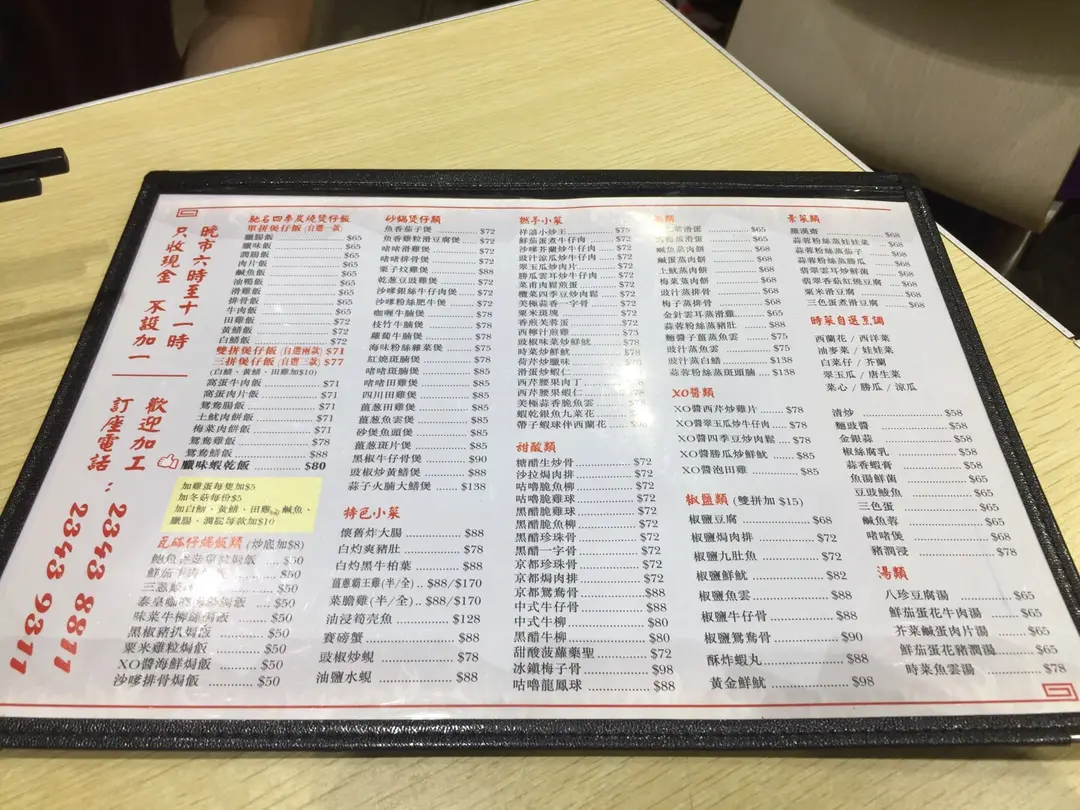 晚市六時至十一時
只收現金 不設加一
歡迎加工
訂座電話：2343 8811
2343 9311
馳名四季炭燒煲仔飯
單拼煲仔飯 (自選一款)
臘腸飯 $65
臘味飯 $65
潤腸飯 $65
肉片飯 $65
鹹魚飯 $65
油鴨飯 $65
滑雞飯 $65
排骨飯 $65
牛肉飯 $65
田雞飯 $72
黃鱔飯 $72
白鱔飯 $72
雙拼煲仔飯 (自選兩款) $71
三拼煲仔飯 (自選三款) $77
(白鱔、黃鱔、田雞加$10)
窩蛋牛肉飯 $71
窩蛋肉片飯 $71
鴛鴦腸飯 $71
土魷肉餅飯 $71
梅菜肉餅飯 $71
鴛鴦雞飯 $78
鴛鴦鱔飯 $88
臘味蝦乾飯 $80
加雞蛋每隻加$5
加冬菇每份$5
加白鱔、黃鱔、田雞、鹹魚、
臘腸、潤腸每款加$10
焗飯類 (炒底加$8)
$50
$50
$50
$50
味菜牛柳絲焗飯 $50
黑椒豬扒焗飯 $50
粟米雞粒焗飯 $50
XO醬海鮮焗飯 $50
沙嗲排骨焗飯 $50
砂鍋煲仔類
魚香茄子煲 $72
魚香雞粒滑豆腐煲 $72
啫啫滑雞煲 $72
啫啫排骨煲 $72
栗子炆雞煲 $88
乾蔥豆豉雞煲 $72
沙嗲銀絲牛仔肉煲 $72
沙嗲粉絲肥牛煲 $72
咖喱牛腩煲 $78
枝竹牛腩煲 $78
蘿蔔牛腩煲 $78
海味粉絲雜菜煲 $75
紅燒斑腩煲 $88
啫啫斑腩煲 $88
啫啫田雞煲 $85
四川田雞煲 $85
薑葱田雞煲 $85
薑葱魚雲煲 $85
砂煲魚頭煲 $85
薑葱斑片煲 $85
黑椒牛仔骨煲 $90
豉椒炒黃鱔煲 $88
蒜子火腩大鱔煲 $138
特色小菜
懷舊炸大腸 $88
白灼爽豬肚 $78
白灼黑牛柏葉 $88
薑蔥霸王雞(半/全) $88/$170
菜膽雞(半/全) $88/$170
油浸筍壳魚 $128
賽磅蟹 $88
豉椒炒蜆 $78
油鹽水蜆 $88
撚手小菜
祥請小炒王 $75
鮮茄蛋煮牛仔肉 $72
沙嗲芥蘭炒牛仔肉 $72
豉汁涼瓜炒牛仔肉 $72
翠玉瓜炒肉片 $72
勝瓜雲耳炒牛仔肉 $72
菜甫肉鬆煎蛋 $72
欖菜四季豆炒肉鬆 $72
美極蒜香一字骨 $72
粟米斑塊 $72
香煎芙蓉蛋 $72
西檸汁煎雞 $75
豉椒味菜炒鮮魷 $78
時菜炒鮮魷 $78
荷芹炒臘味
滑蛋炒蝦仁
西芹腰果肉丁
西芹腰果蝦仁
美極蒜香脆魚雲
蝦乾銀魚九菜花
帶子蝦球伴西蘭花
甜酸類
糖醋生炒骨 $72
沙拉焗肉排 $72
咕嚕脆魚柳 $72
咕嚕脆雞球 $72
黑醋脆雞球 $72
黑醋脆魚柳 $72
黑醋珍珠骨 $72
黑醋一字骨 $72
京都珍珠骨 $72
京都焗肉排 $72
京都鴛鴦骨 $88
中式牛仔骨 $88
中式牛柳 $80
黑醋牛柳 $80
甜酸菠蘿藥聖 $72
冰鎮梅子骨 $98
咕嚕龍鳳球 $88
類
滑雞 $65
蛋滑雞 $65
鹹魚蒸肉餅 $68
鹹蛋蒸肉餅 $68
土魷蒸肉餅 $68
梅菜蒸肉餅 $68
豉汁蒸排骨 $68
梅子蒸排骨 $68
金針雲耳蒸滑雞 $65
蒜蓉粉絲蒸豬膶 $88
麵醬子薑蒸魚雲 $75
豉汁蒸魚雲 $75
豉汁蒸白鱔 $138
蒜蓉粉絲蒸斑頭腩 $138
XO醬類
XO醬西芹炒雞片 $78
XO醬翠玉瓜炒牛仔肉 $78
XO醬四季豆炒肉鬆 $78
XO醬勝瓜炒鮮魷 $85
XO醬泡田雞 $85
椒鹽類 (雙拼加 $15)
椒鹽豆腐 $68
椒鹽焗肉排 $72
椒鹽九肚魚 $72
椒鹽鮮魷 $82
椒鹽魚雲 $88
椒鹽牛仔骨 $88
椒鹽鴛鴦骨 $90
酥炸蝦丸 $88
黃金鮮魷 $98
素菜類
羅漢齋 $68
蒜蓉粉絲蒸娃娃菜 $68
蒜蓉粉絲蒸茄子 $68
蒜蓉粉絲蒸勝瓜 $68
翡翠雲耳炒鮮菌 $68
翡翠香菇紅燒豆腐 $68
粟米滑豆腐 $68
三色蛋煮滑豆腐 $68
時菜自選烹調
西蘭花 / 西洋菜
油麥菜 / 娃娃菜
白菜仔 / 芥蘭
翠玉瓜 / 唐生菜
菜心 / 勝瓜 / 涼瓜
清炒 $58
麵豉醬 $58
金銀蒜 $58
椒絲腐乳 $58
蒜香蝦膏 $58
魚湯鮮菌 $58
豆豉鯪魚 $58
三色蛋 $58
鹹魚蓉 $58
啫啫煲 $68
豬潤浸 $78
湯類
八珍豆腐湯 $65
鮮茄蛋花牛肉湯 $65
芥菜鹹蛋肉片湯 $65
鮮茄蛋花豬潤湯 $65
時菜魚雲湯 $78